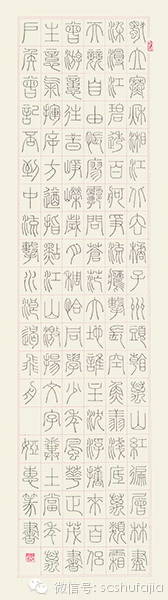 獨立寒秋湘江北去橘子洲頭看萬山紅遍層林盡
染漫江碧透百舸爭流鷹擊長空魚翔淺底萬類霜
天競自由悵寥廓問蒼茫大地誰主沉浮攜來百侶
曾遊憶往昔崢嶸歲月稠恰同學少年風華正茂書
生意氣揮斥方遒指點江山激揚文字糞土當年萬
戶侯曾記否到中流擊水浪遏飛舟 篆書
微信号: scshufajia